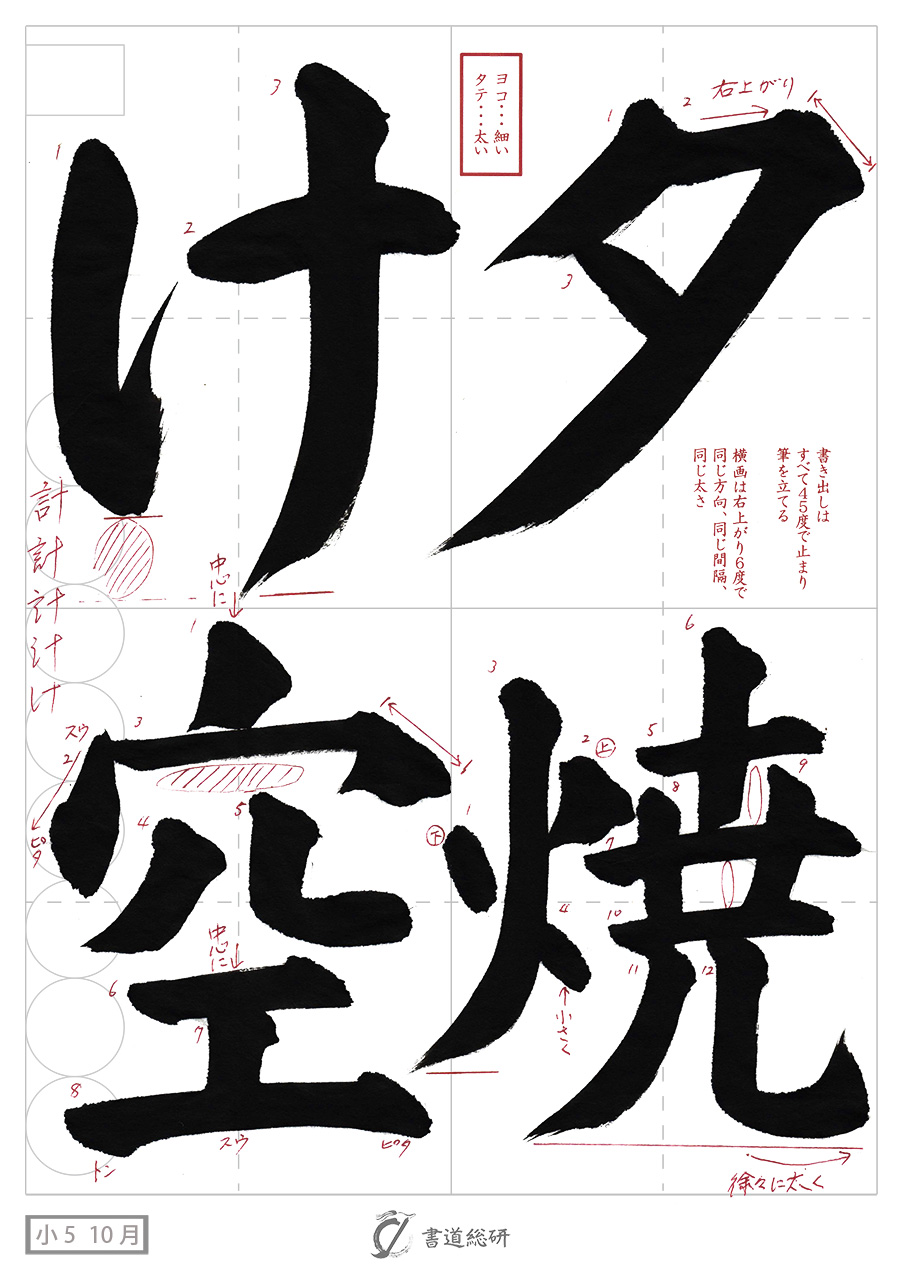 夕焼
け空
ヨコ・・・細い
タテ・・・太い
1
2
右上がり
3
書き出しは
すべて45度で止まり
筆を立てる
横画は右上がり6度で
同じ方向、同じ間隔、
同じ太さ
1
下
2
上
3
4
小さく
5
6
7
8
9
10
11
12
徐々に太く
1
2
3
計
計
计
计
け
中心に
1
スウ
2
ピタ
3
4
5
中心に
6
7
8
トン
スウ
ピタ
小5 10月
書道総研